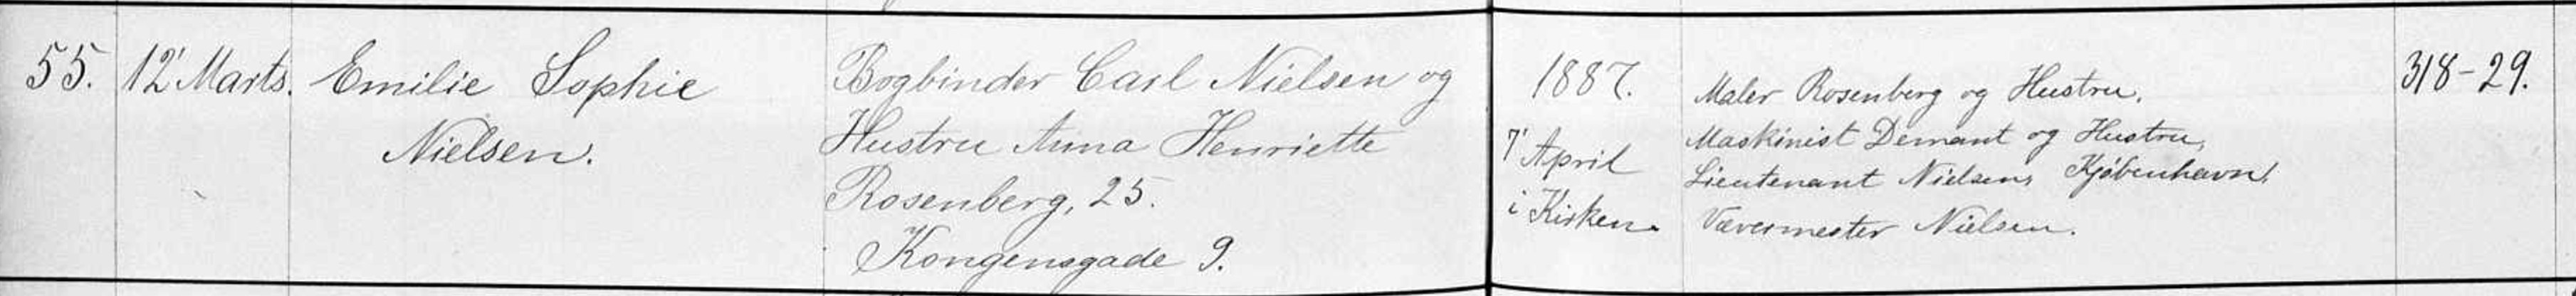 55.
12' Marts.
Emilie Sophie
Nielsen.
Bogbinder Carl Nielsen og
Hustru Anna Henriette
Rosenberg, 25.
Kongensgade 9.
1887.
7' April
i Kirken.
Maler Rosenberg og Hustru.
Maskinist Demant og Hustru,
Lieutenant Nielsen, Kjøbenhavn.
Væremester Nielsen.
318-29.